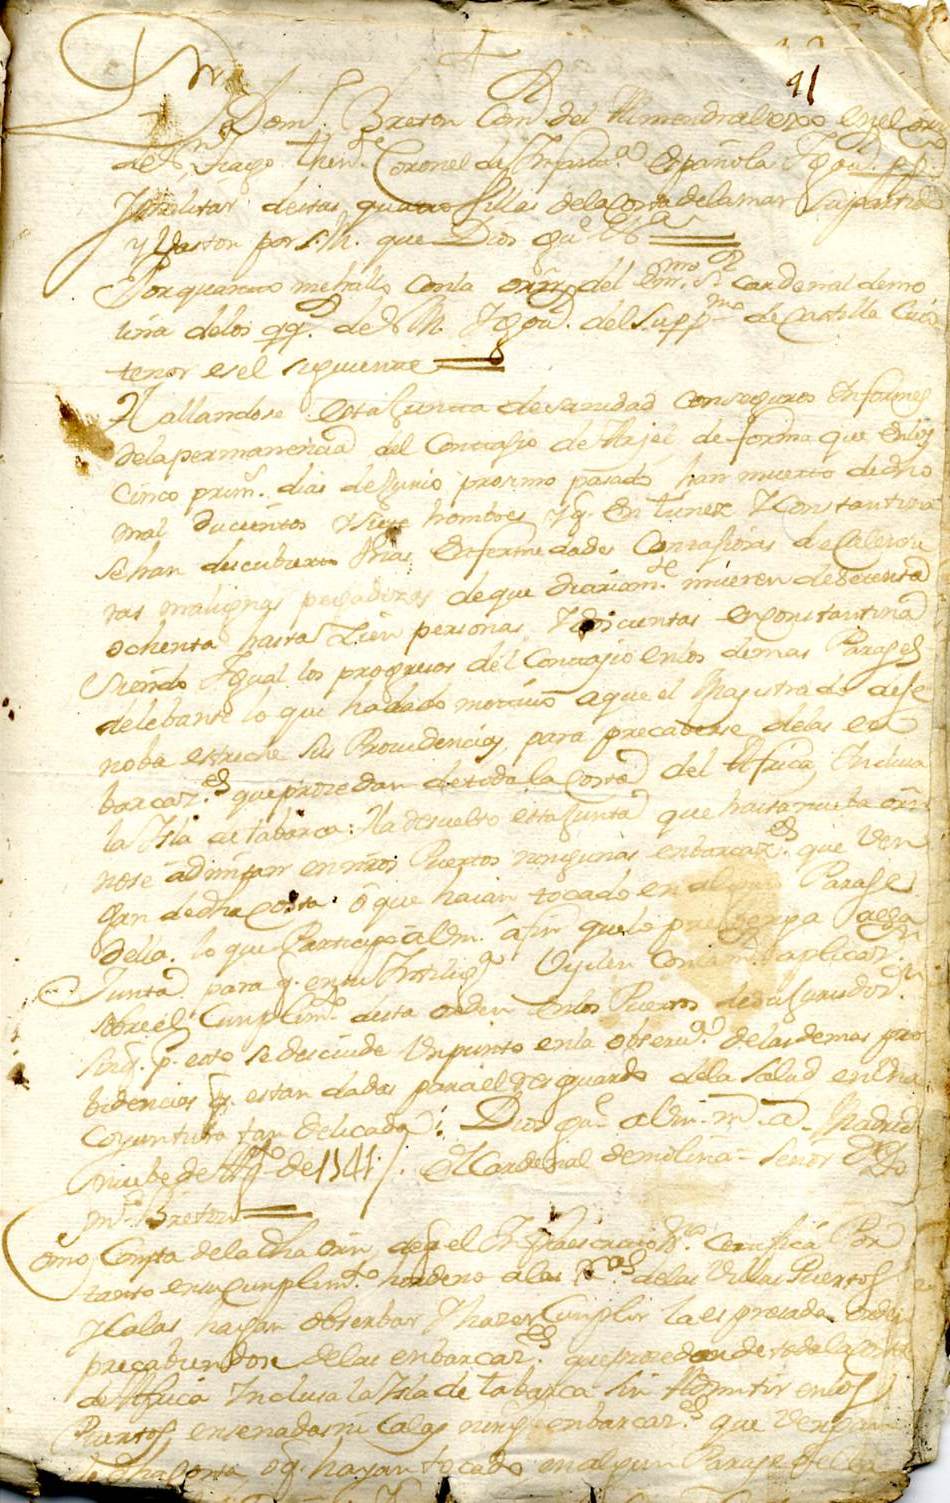 41
Dn Domo. Breton Comr. del Almendralexo en el orn
de Sn tiago then.te Coronel de Infanta. Española Y Gour.
Militar destas quatro Villas dela Costa dela mar Su partido
y Vaston por S.M. que Dios gue.
Por quanto me hallo con la orn del Emmo. Sr. Cardenal de mo
lina delos del Consexo de S.M. Y Gour. del Supp.mo de Castilla Cuio
tenor es el siguiente
Hallandose esta Junta de Sanidad con seguros Informes
dela permanencia del Contagio de Arjel, de forma que en los
Cinco prim. dias de Junio proximo pasado han muerto de dho
mal ducientos y siete hombres, Y q. En tunez Y Constantina
se han descubierto Enfermedades Contagiosas de Calentu
ras malignas pegadizas de que diariam.te mueren de setenta
ochenta hasta Zien personas, Y ducientas en Constantina
Siendo Ygual los progresos del Contagio en los demas Parages
de lebante lo que ha dado motivo a que el Magistrado de Je
noba estreche sus Providencias, para precaberse delas en
barcaz.es que prozedan de toda la Costa del Africa, Inclusa
la Isla de tabarca: Ha resuelto esta Junta que hasta nueba orn
no se admitan en nros Puertos ningunas enbarcaz.es que Ven
gan de dha Costa, ô que haian tocado en alguno Parage
della. lo que Participo â Vm. â fin que lo prebenga
Junta para q. en su Yntelig.a Vijilen con la m. aplicaz.n
sobre el Cumplim.to desta orden en los Puertos de su Jurisdiz.n
sin q. p. esto se descuide Un punto en la observ.a delas demas pro
bidencias q. estan dadas para el resguardo dela Salud en Una
Coyuntura tan delicada: Dios gue. a Vm. m. a. Madrid
nuebe de Ag.to de 1741 / El Cardenal de molina = Señor Dn
Breton
Como Consta de la dha orn, de q. el Ynfraescripto Certifica Por
tanto en su Cumplim.to hordeno a las delas Villas Puertos
y Calas hagan obserbar Y hazer Cumplir la espresada orden
precabiendose delas enbarcaz.es que prozedan de toda la Costa
de Africa Inclusa la Isla de tabarca Sin Admitir en los
Puertos, ensenadas ni Calas ning. enbarcaz.es que Vengan
de dha Costa, o q. hayan tocado en algun Parage de ella